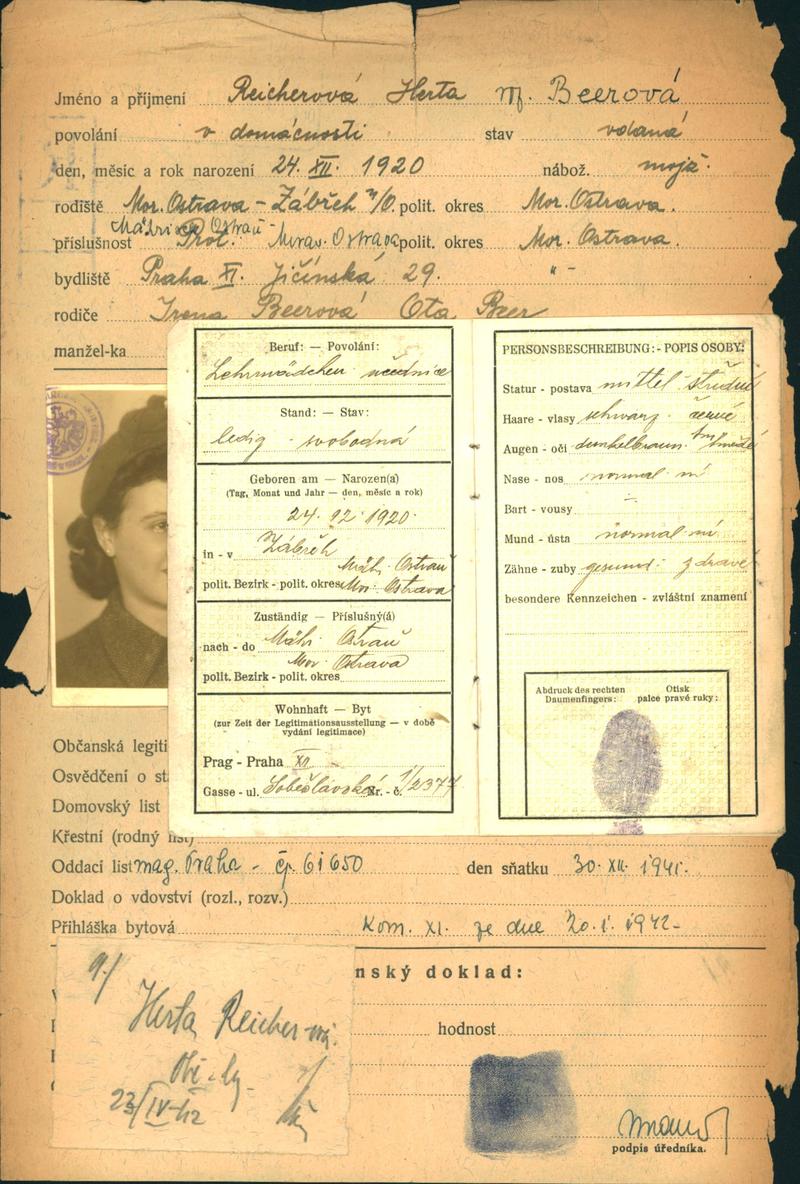 Jméno a příjmení Reicherová Herta roz. Beerová
povolání v domácnosti stav vdaná
den, měsíc a rok narození 24. XII. 1920 nábož. mojž.
rodiště Mor. Ostrava - Zábřeh n/O polit. okres Mor. Ostrava.
Mährisch Ostrau -
příslušnost Prot. Morav. Ostrava polit. okres Mor. Ostrava.
bydliště Praha XI. Jičínská 29. " -
rodiče Irena Beerová Ota Beer
manžel-ka
Beruf: — Povolání:
Lehrmädchen učednice
Stand: — Stav:
ledig - svobodná
Geboren am — Narozen(a)
(Tag, Monat und Jahr — den, měsíc a rok)
24. 12. 1920.
in - v Zábřeh
Mähr. Ostrau
polit. Bezirk - polit. okres Mor. Ostrava
Zuständig — Příslušný(á)
nach - do Mähr. Ostrau
Mor. Ostrava
polit. Bezirk - polit. okres
Wohnhaft — Byt
(zur Zeit der Legitimationsausstellung — v době
vydání legitimace)
Prag - Praha XI
Gasse - ul. Soběslavská Nr. - č. 1/2377
PERSONSBESCHREIBUNG: - POPIS OSOBY:
Statur - postava mittel - střední
Haare - vlasy schwarz - černé
Augen - oči dunkelbraun - tm. hnědé
Nase - nos normal - ní
Bart - vousy -
Mund - ústa normal - ní
Zähne - zuby gesund - zdravé
besondere Kennzeichen - zvláštní znamení
Abdruck des rechten Daumenfingers:
Otisk palce pravé ruky:
Občanská legiti
Osvědčení o st
Domovský list
Křestní (rodný list)
Oddací list mag. Praha - čp. 61650 den sňatku 30. XII. 1941.
Doklad o vdovství (rozl., rozv.)
Přihláška bytová Kom. XI. ze dne 20. 1. 1942 -
nský doklad:
9./
Herta Reicher
hodnost
23/IV-42
podpis úředníka.